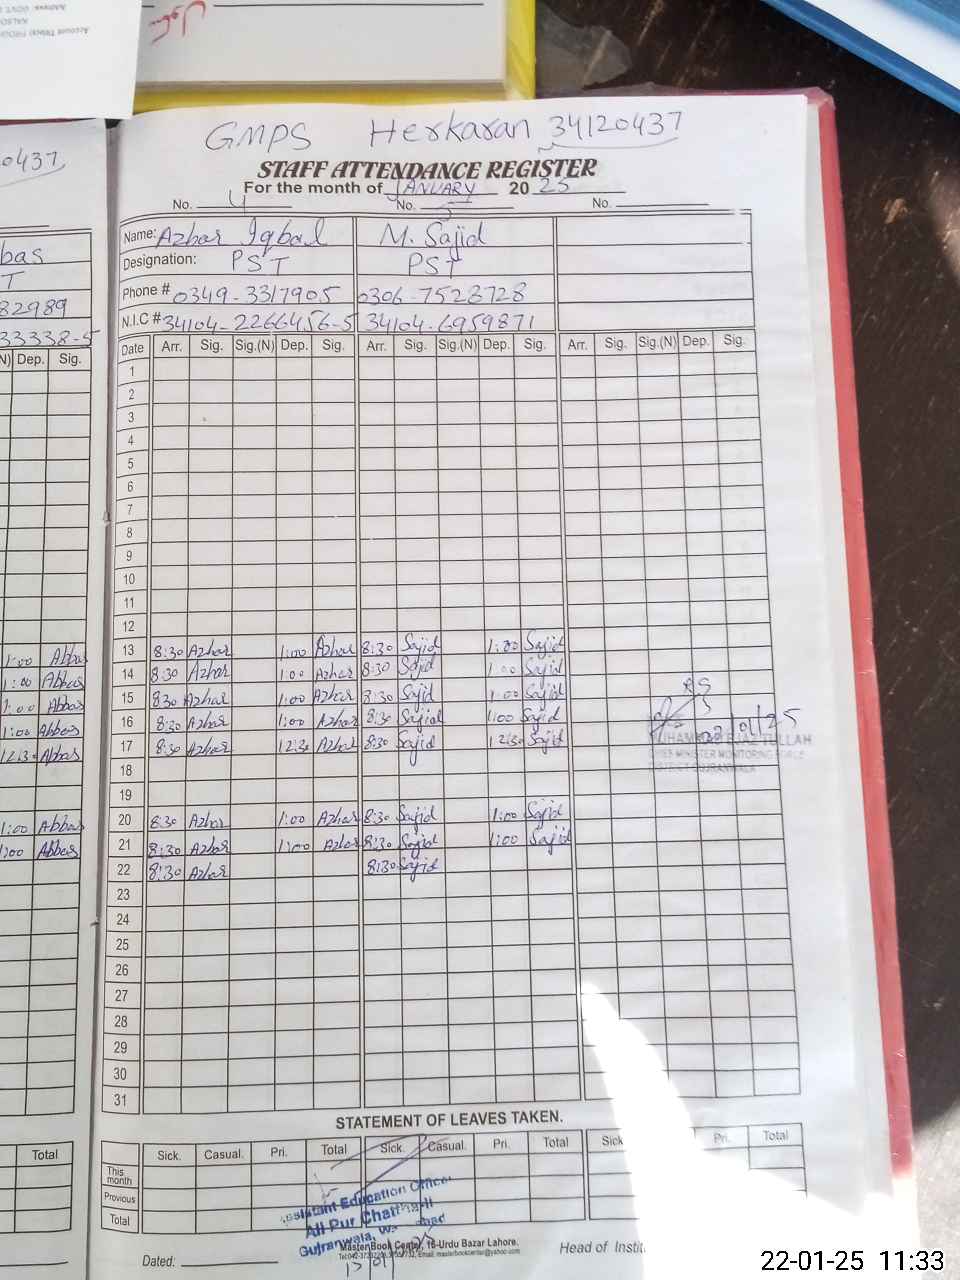 GMPS Herkaran 34120437
STAFF ATTENDANCE REGISTER
For the month of JANUARY 20 25
No. 4 No. 5 No.
Name: Azhar Iqbal M. Sajid
Designation: PST PST
Phone # 0349-3317905 0306-7523728
N.I.C # 34104-2266456-5 34104-6959871
Date Arr. Sig. Sig.(N) Dep. Sig. Arr. Sig. Sig.(N) Dep. Sig. Arr. Sig. Sig.(N) Dep. Sig.
1
2
3
4
5
6
7
8
9
10
11
12
13 8:30 Azhar 1:00 Azhar 8:30 Sajid 1:00 Sajid
14 8:30 Azhar 1:00 Azhar 8:30 Sajid 1:00 Sajid
15 8:30 Azhar 1:00 Azhar 8:30 Sajid 1:00 Sajid
16 8:30 Azhar 1:00 Azhar 8:30 Sajid 1:00 Sajid
17 8:30 Azhar 12:30 Azhar 8:30 Sajid 12:30 Sajid
18
19
20 8:30 Azhar 1:00 Azhar 8:30 Sajid 1:00 Sajid
21 8:30 Azhar 1:00 Azhar 8:30 Sajid 1:00 Sajid
22 8:30 Azhar 8:30 Sajid
23
24
25
26
27
28
29
30
31
CHIEF MINISTER MONITORING FORCE
DISTRICT GUJRANWALA
STATEMENT OF LEAVES TAKEN.
Sick. Casual. Pri. Total Sick. Casual. Pri. Total Sick Pri. Total
This month
Previous
Total
Assistant Education Officer
Gujranwala
Master Book Center, 16-Urdu Bazar Lahore.
Dated: Head of Instit
0437
bas
T
82989
33338-5
N) Dep. Sig.
1:00 Abbas
1:00 Abbas
1:00 Abbas
1:00 Abbas
12:30 Abbas
1:00 Abbas
1:00 Abbas
Total
22-01-25 11:33